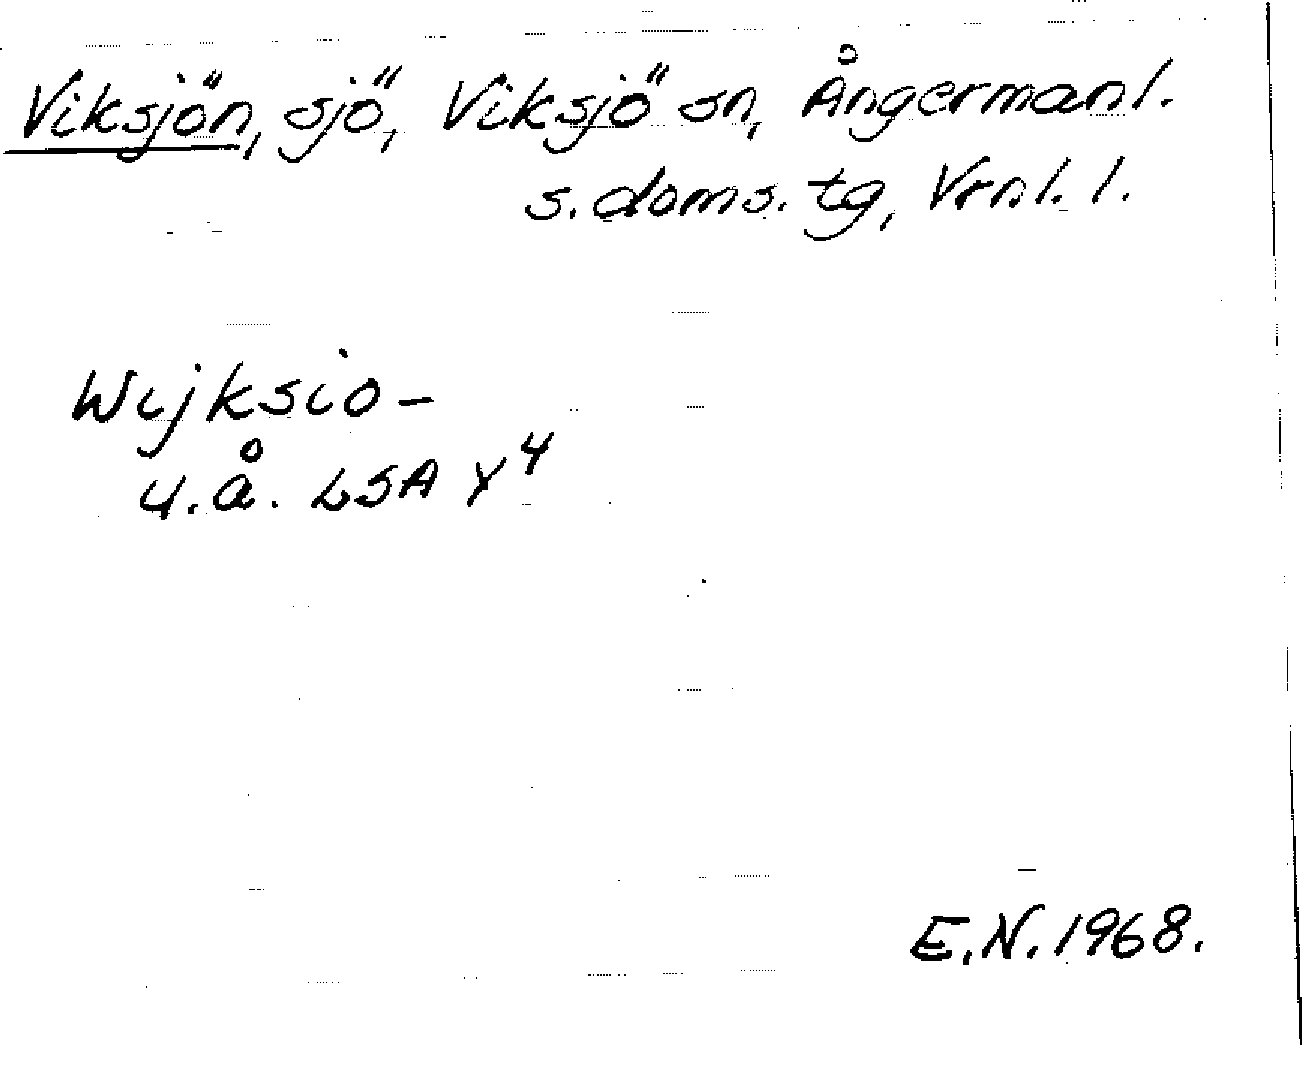 Viksjön, sjö, Viksjö sn, Ångermanl.
s. doms. tg, Vrnl. l.
Wijksio-
u.å. LSA Y4
E.N. 1968.